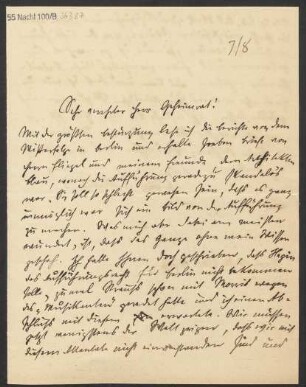 55 Nachl 100/B
7/8
Sehr verehrter Herr Geheimrat!
Mit der größten Bestürzung lese ich die Berichte von dem
Mißerfolge in Berlin und erhalte soeben Briefe von
Herrn und meinem Freunde dem Architekten
, wonach die Aufführung geradezu skandalös
war. Sie soll so schlecht gewesen sein, daß es ganz
unmöglich war sich ein Bild von der Aufführung
zu machen. Was mich aber dabei am meisten
wundert, ist, daß das Ganze ohne mein Wissen
geschah. Ich hatte Ihnen doch geschrieben, daß
das Aufführungsrecht für Berlin nicht bekommen
sollte, da zwei Freunde schon mit Moris wegen
des "Musikanten" geredet hatte und ich einen Ab-
schluß mit diesem erwartete. Wir müssen
jetzt wenigstens der Welt zeigen, daß wir mit
diesem Attentate nicht einverstanden sind und